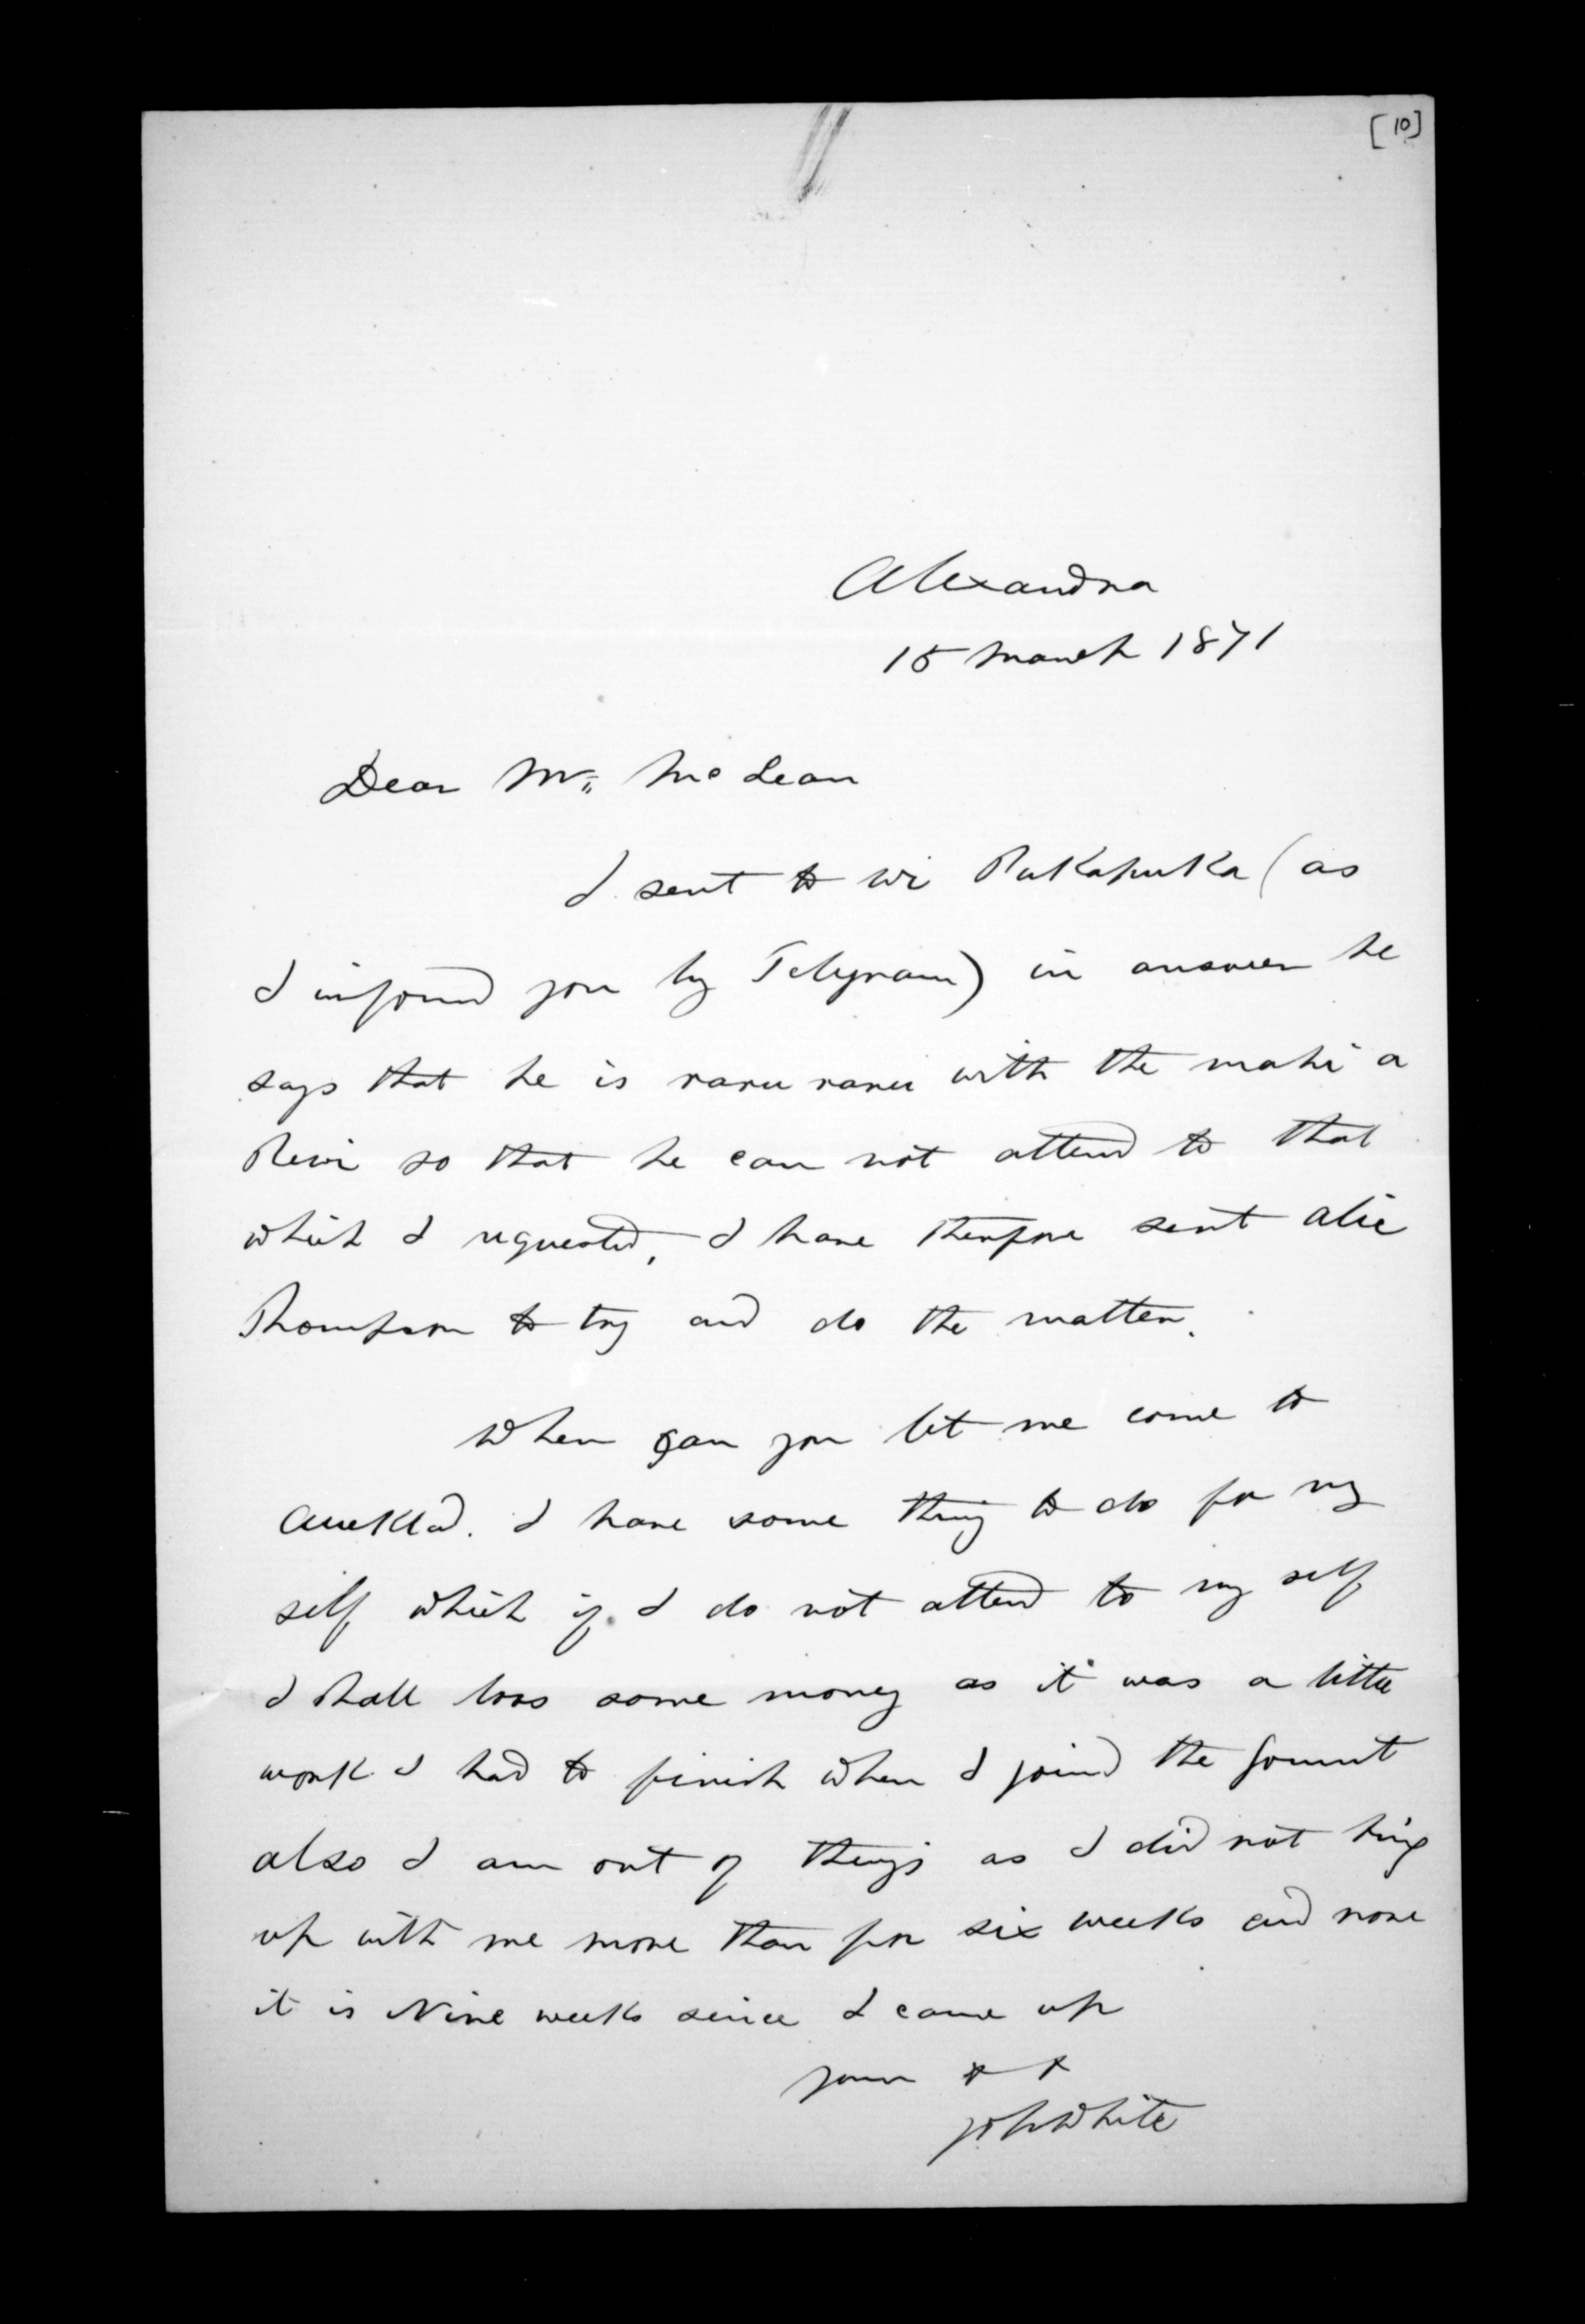 [10]
Alexandra
15 March 1871
Dear Mr. McLean
I sent to Wi Pukapuka (as
I informd you by Telegram) in answer he
says that he is raru raru with the mahi a
Rewi so that he can not attend to that
which I requested, I have therefore sent
Thompson to try and do the matter.
When can you let me come to
Auckld. I have some thing to do for my
self which if I do not attend to my self
I shall loos some money as it was a little
work I had to finish when I joind the Govmnt
also I am out of things as I did not bring
up with me more than for six weeks and now
it is Nine weeks since I came up
yours
John White